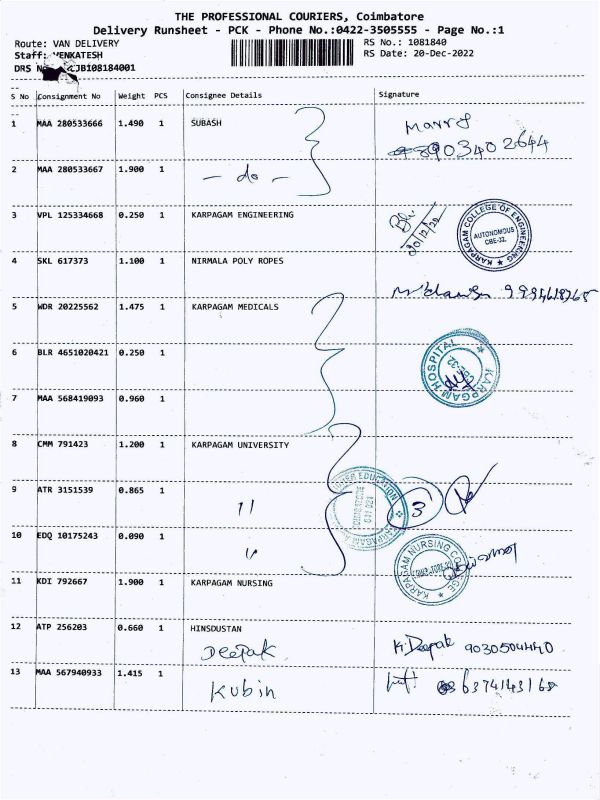 THE PROFESSIONAL COURIERS, Coimbatore
Delivery Runsheet - PCK - Phone No.:0422-3505555 - Page No.:1
Route: VAN DELIVERY RS No.: 1081840
Staff: VENKATESH RS Date: 20-Dec-2022
DRS JB108184001
S No Consignment No Weight PCS Consignee Details Signature
1 MAA 280533666 1.490 1 SUBASH
8903402644
2 MAA 280533667 1.900 1 - do -
3 VPL 125334668 0.250 1 KARPAGAM ENGINEERING 20/12/22 KARPAGAM COLLEGE OF ENGINEERING AUTONOMOUS CBE-32.
4 SKL 617373 1.100 1 NIRMALA POLY ROPES
5 WDR 20225562 1.475 1 KARPAGAM MEDICALS
6 BLR 4651020421 0.250 1 KARPAGAM HOSPITAL
7 MAA 568419093 0.960 1
8 CMM 791423 1.200 1 KARPAGAM UNIVERSITY
9 ATR 3151539 0.865 1 11 3
10 EDQ 10175243 0.090 1 KARPAGAM NURSING COLLEGE
11 KDI 792667 1.900 1 KARPAGAM NURSING
12 ATP 256203 0.660 1 HINSDUSTAN
Deepak K. Deepak 9030504440
13 MAA 567940933 1.415 1 Kubin 6374143168